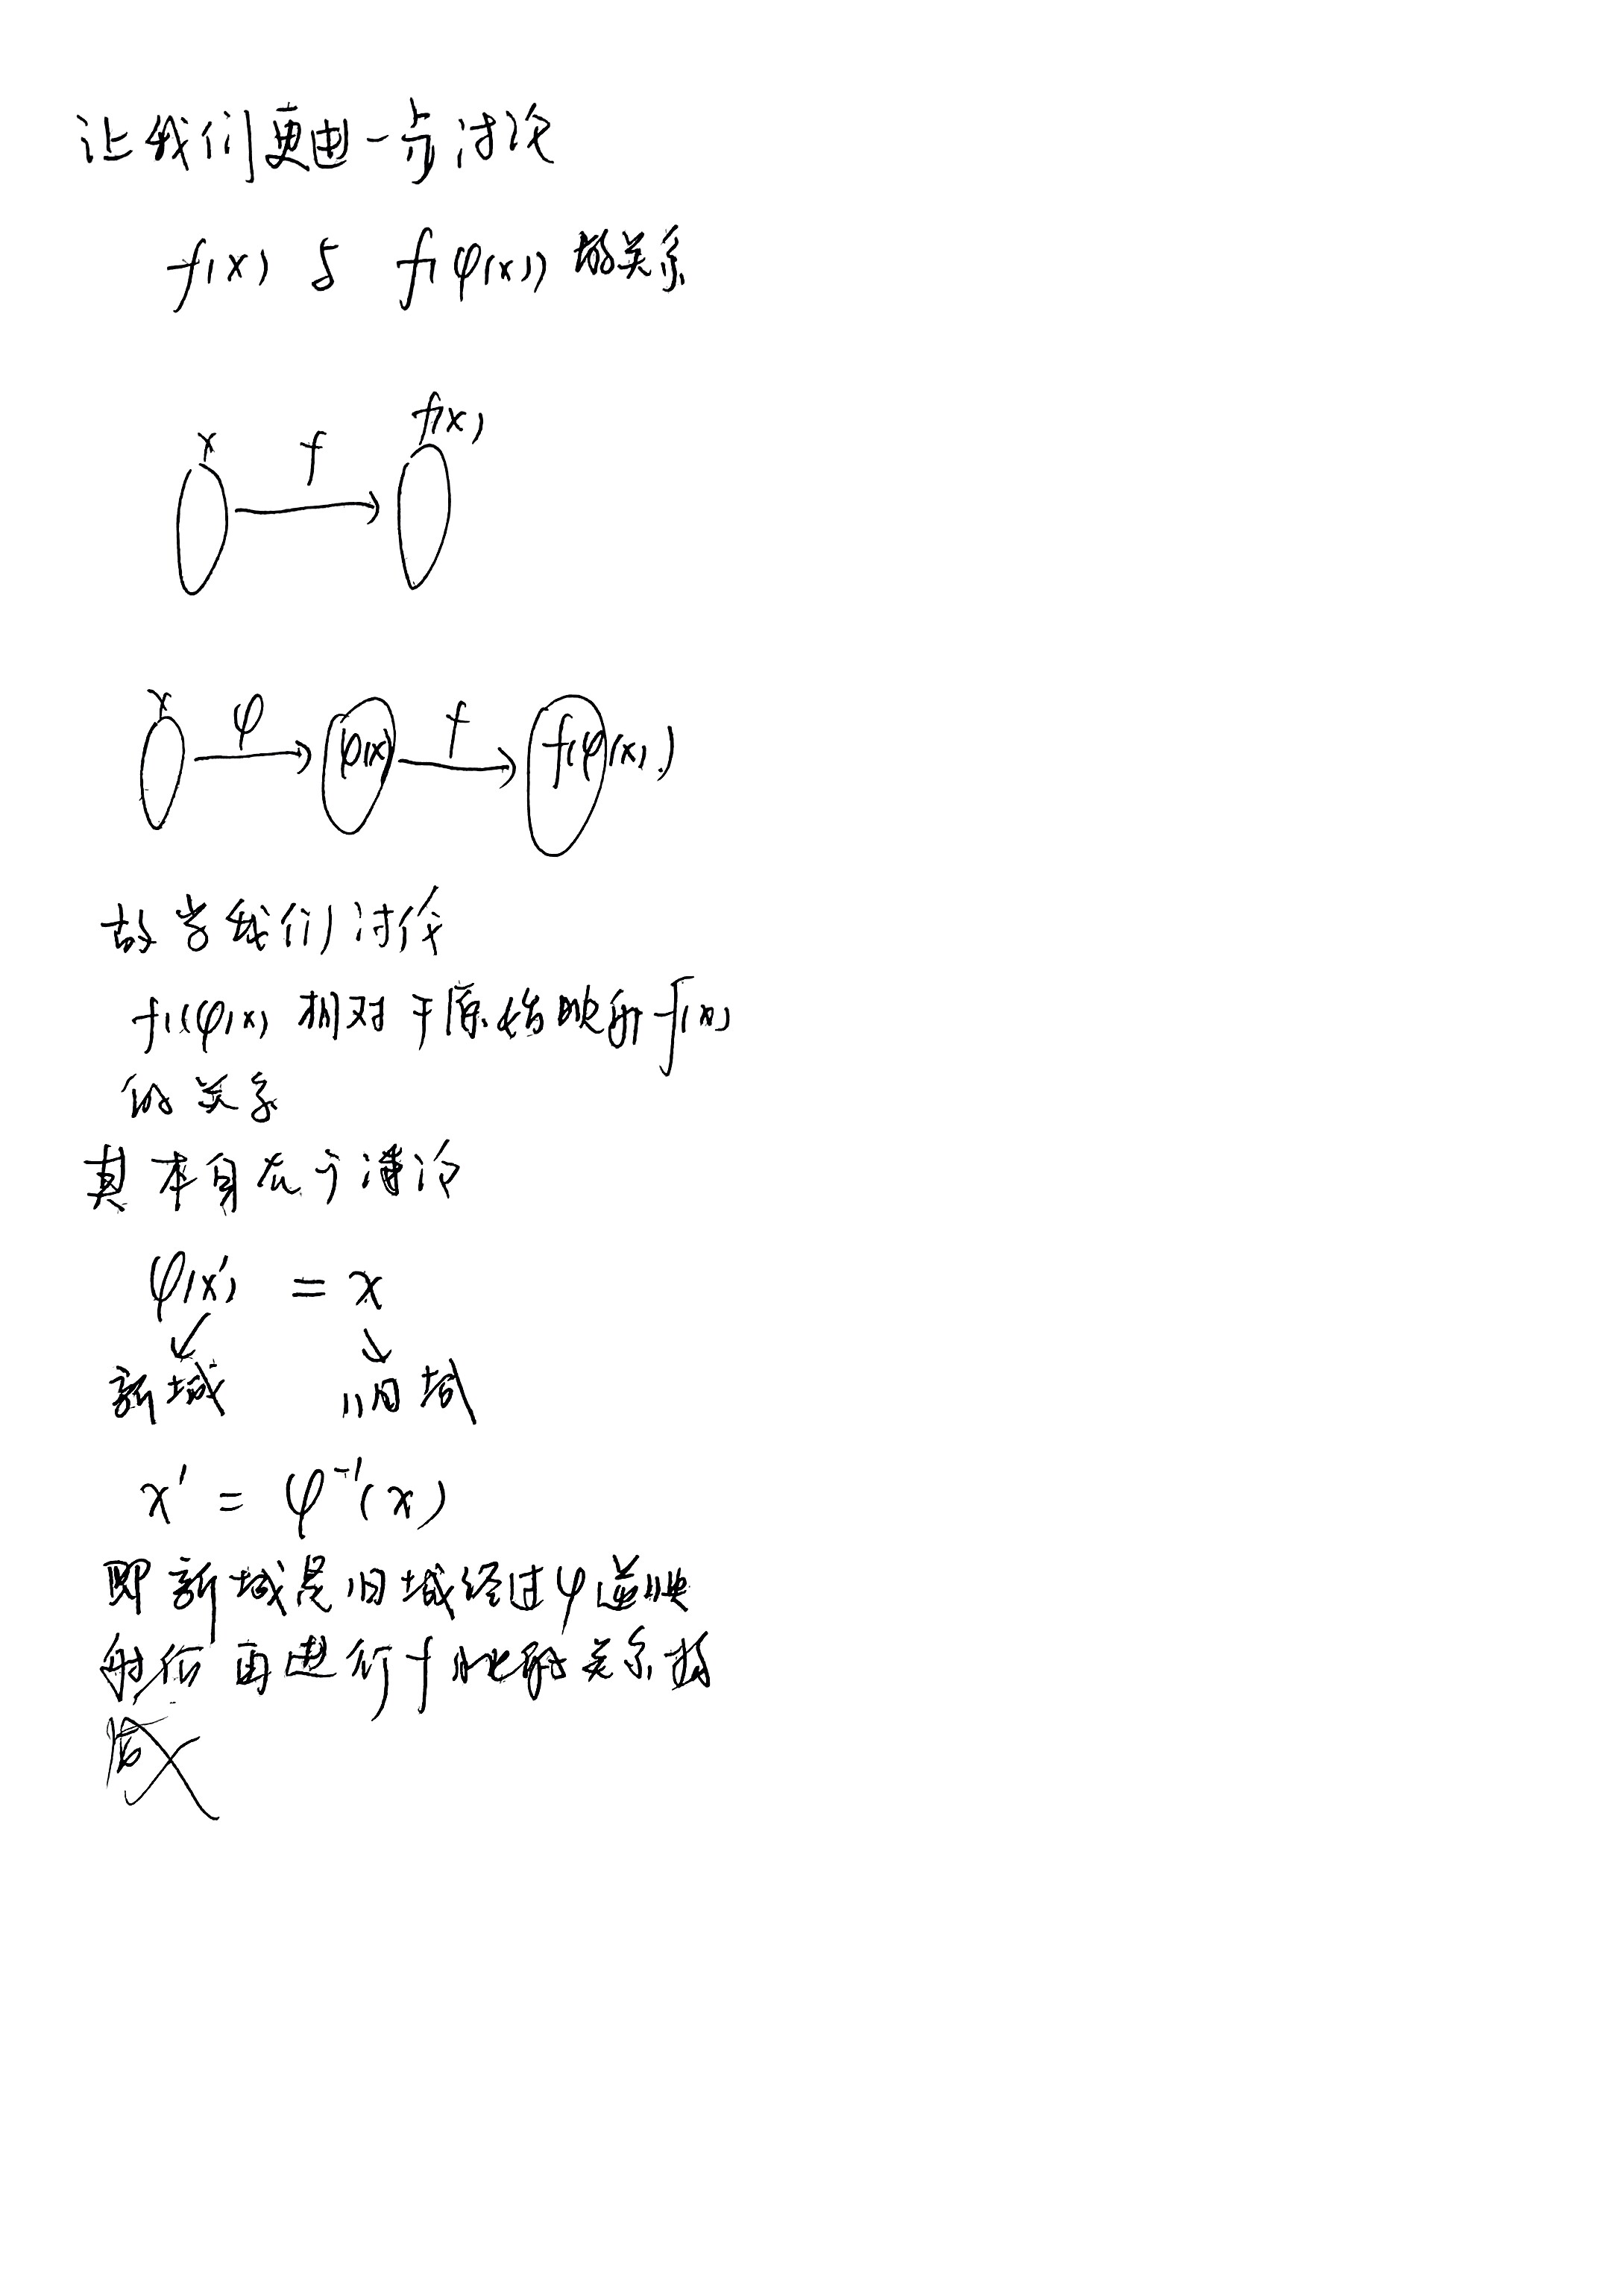 让我们更进一步讨论
f(x) 与 f(φ(x)) 的关系
x f f(x)
x φ φ(x) f f(φ(x))
故当我们讨论
f(φ(x) 相对于原始映射 f(x)
的关系
其本身在于讨论
φ(x') = x
新域 旧域
x' = φ⁻¹(x)
即新域是旧域经过φ逆映
射后再进行f映射关系